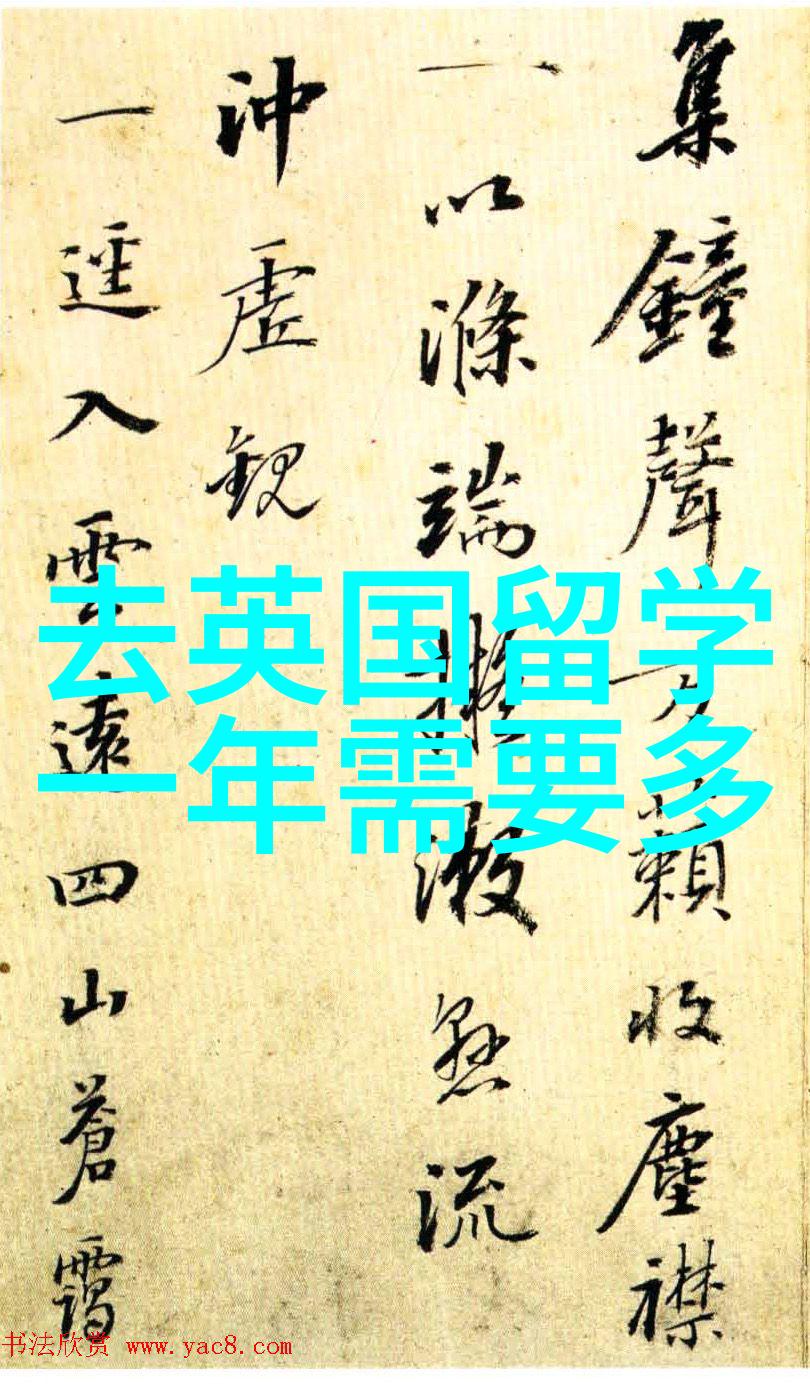 集鐘聲万籟收塵襟
一以滌端擬漱懸流
沖虛觀
一逕入雲遠四山蒼靄
去英国留学
一年需要多
书法欣赏 www.yac8.com